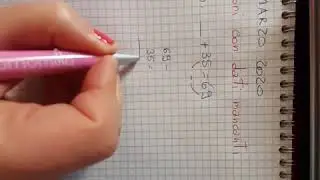 MARZO 2020
con dati mancanti
__ + 35 = 69
69 -
35 =